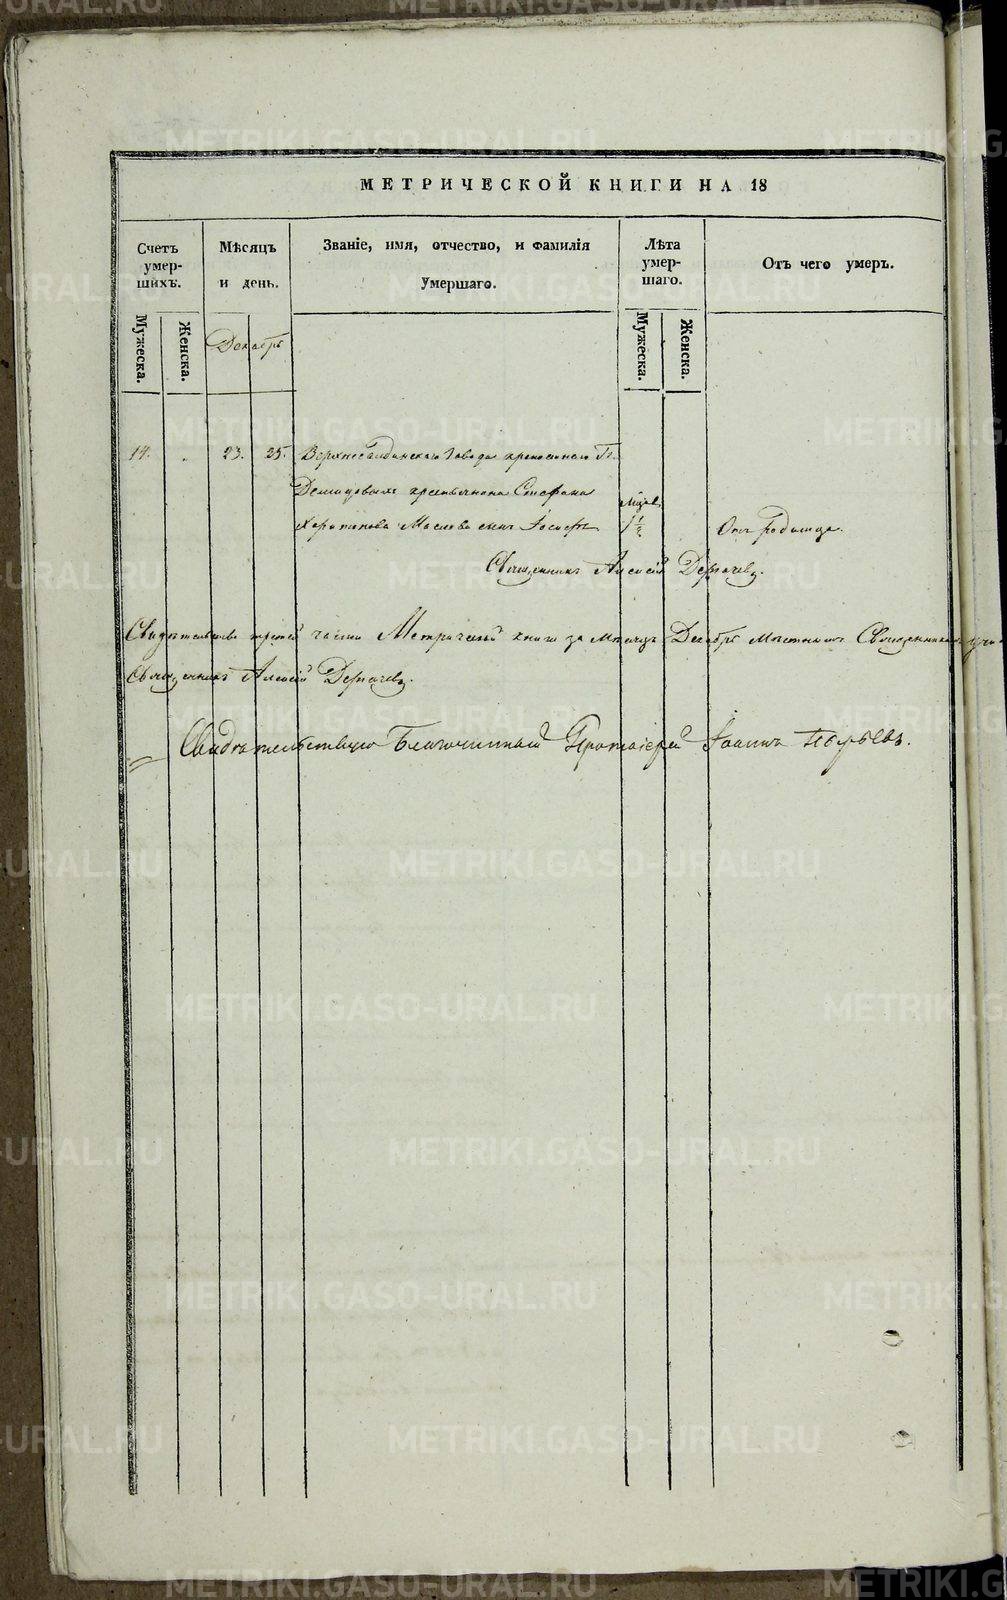 МЕТРИЧЕСКОЙ КНИГИ НА 18
Счетъ умер-шихъ.
Мѣсяцъ и день.
Званіе, имя, отчество, и фамилія Умершаго.
Лѣта умер-шаго.
Отъ чего умеръ.
Мужеска.
Женска.
Декабрь
Мужеска.
Женска.
14. 23. 25. Верхнесалдинскаго Завода Гг.
Демидовыхъ крестьянина Стефана
Маслова сынъ Іосифъ 1½ Отъ родимца.
Священникъ Алексій Дерягинъ.
третей части Метрической книги за Мѣсяцъ Декабрь Священникъ
Священникъ Алексій
Свидѣтельствую Благочинный Протоіерей Іоаннъ
METRIKI.GASO-URAL.RU